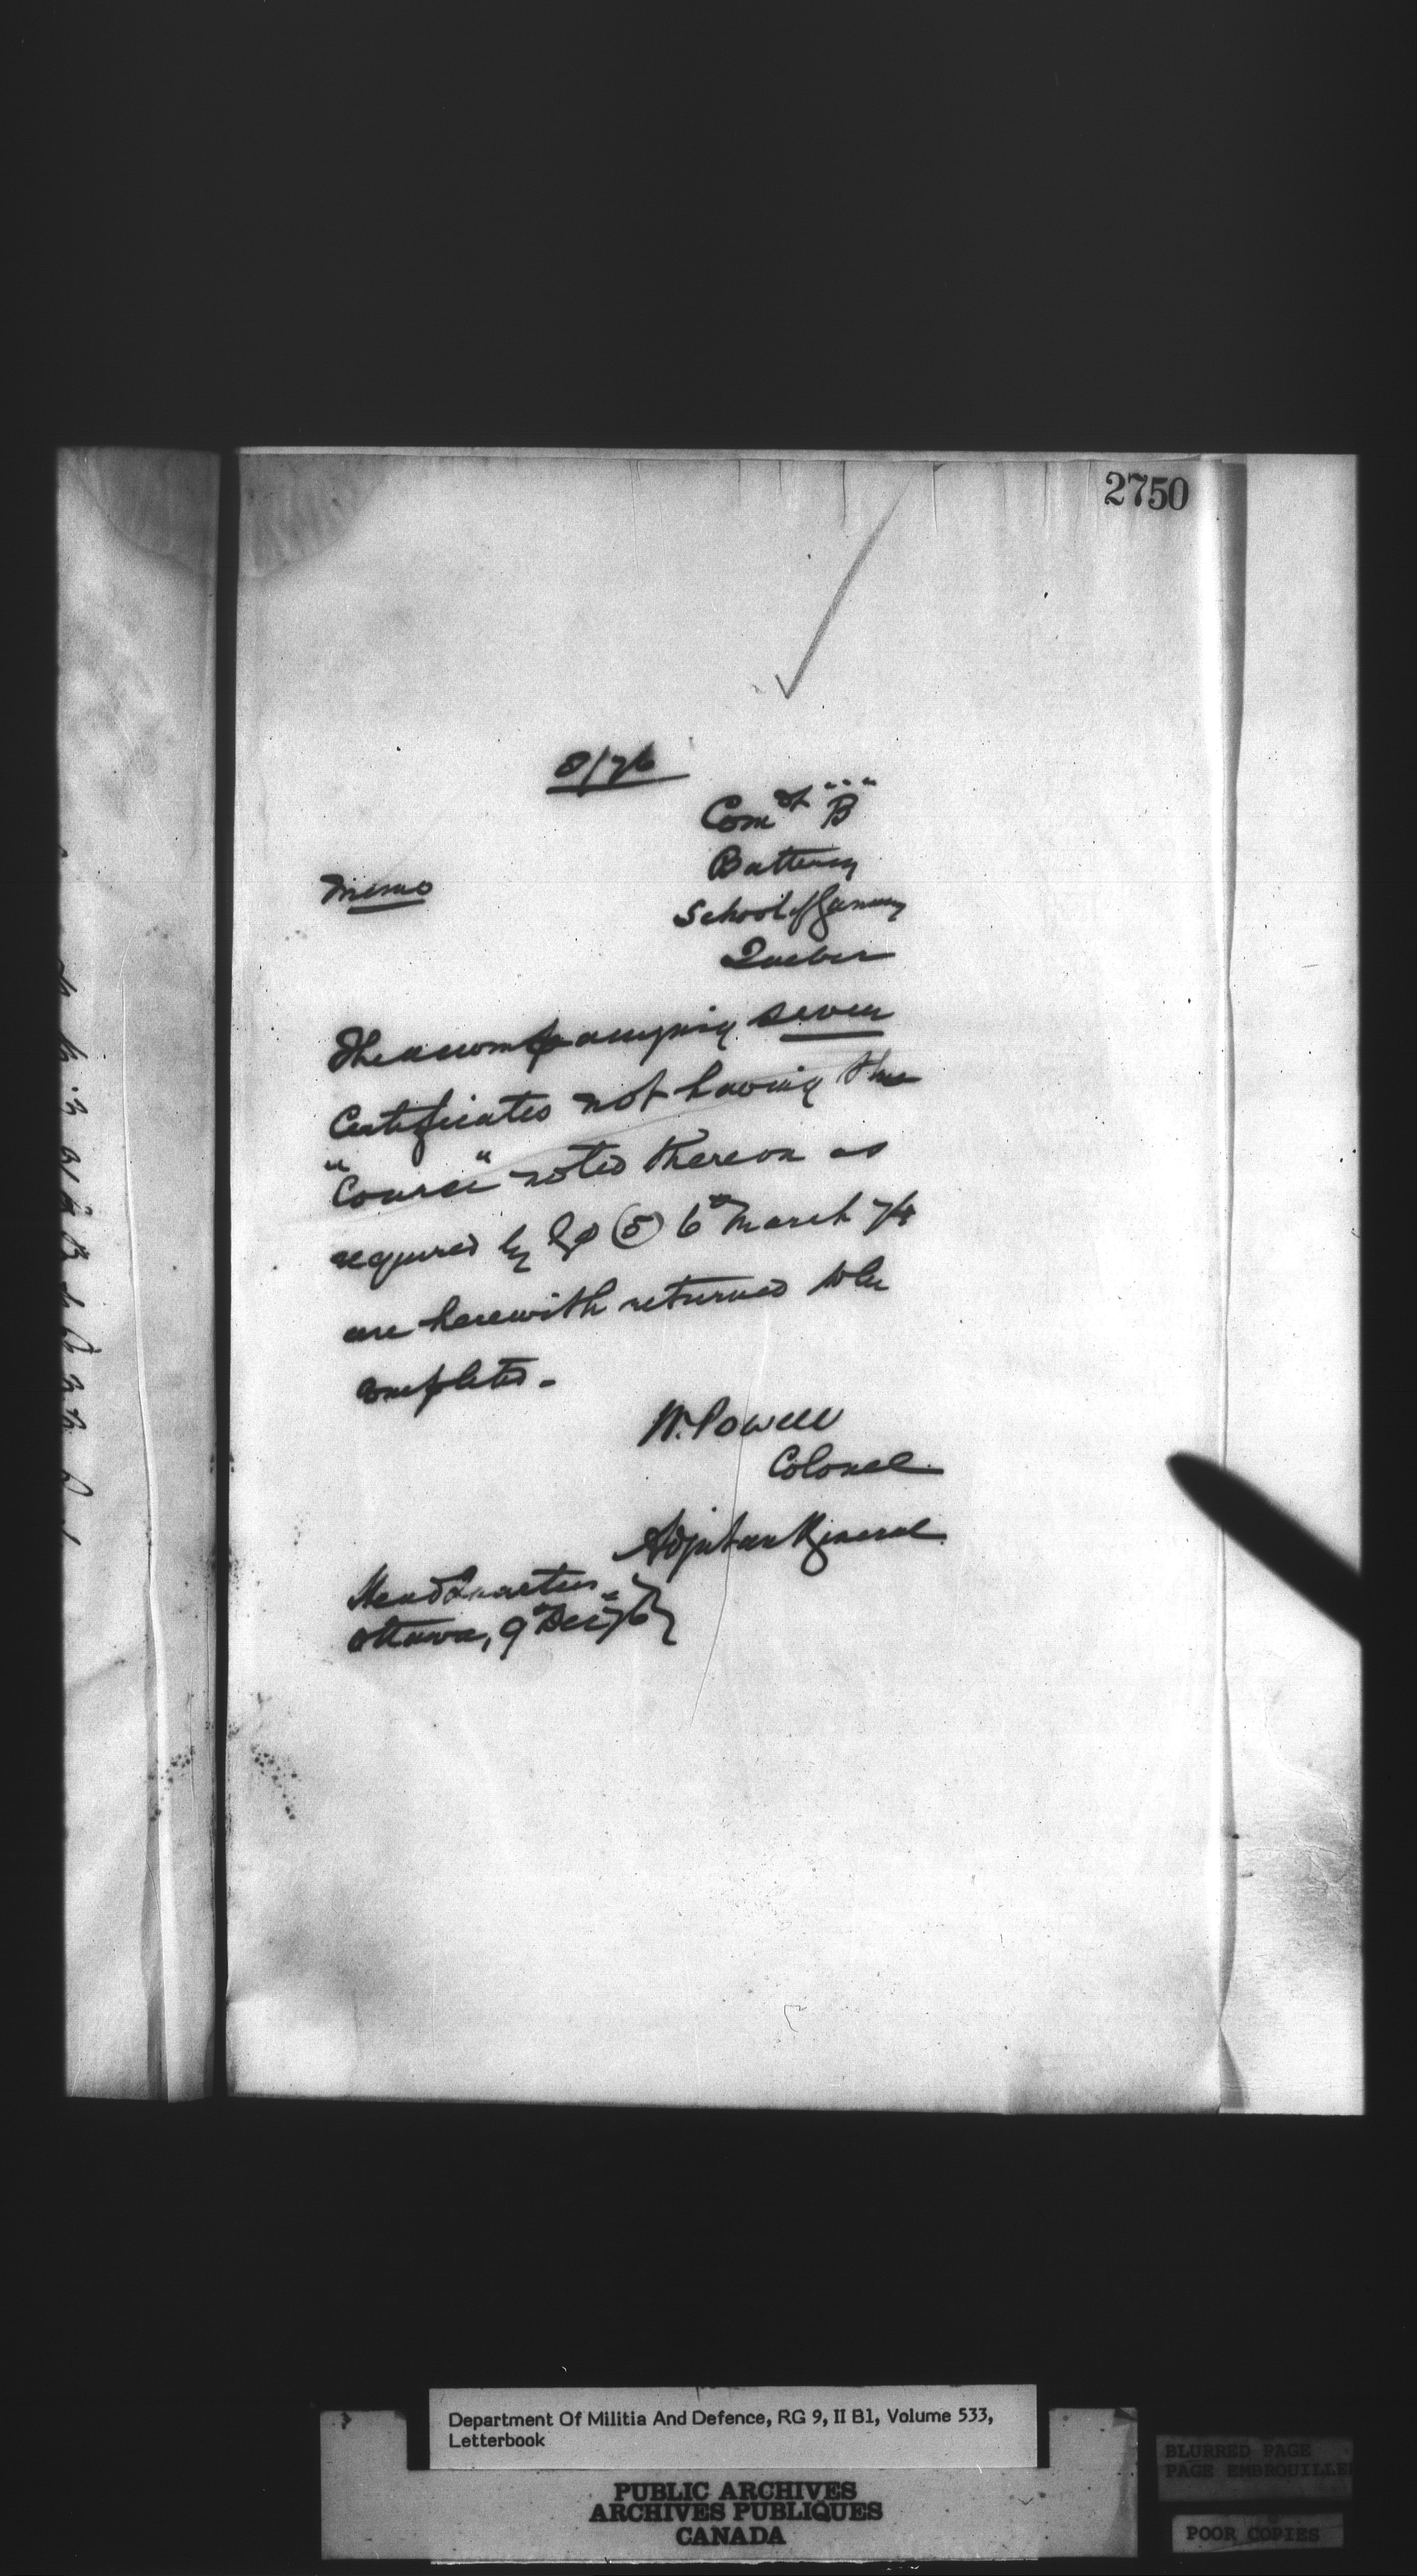 2750
8/76
Comdt "B"
Battery
Memo
School of Gunnery
Quebec
The accompanying seven
Certificates not having the
"Course" noted thereon as
required by GO (5) 6th March 74
are herewith returned to be
completed.
W. Powell
Colonel
Adjutant General
Head Quarters
Ottawa, 9th Dec 76
Department Of Militia And Defence, RG 9, II B1, Volume 533,
Letterbook
PUBLIC ARCHIVES
ARCHIVES PUBLIQUES
CANADA
BLURRED PAGE
PAGE EMBROUILLEE
POOR COPIES